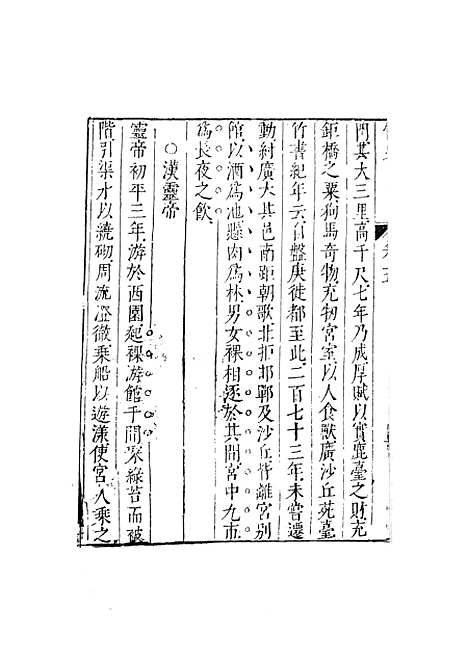 門其大三里高千尺七年乃成厚賦以實鹿臺之財充
鉅橋之粟狗馬奇物充牣宮室以人食獸廣沙丘苑臺
竹書紀年云自盤庚徙都至此二百七十三年未嘗遷
動紂廣大其邑南距朝歌北拒邯鄲及沙丘皆離宮別
館以酒為池懸肉為林男女裸相逐於其間宮中九市
為長夜之飲
○漢靈帝
靈帝初平三年游於西園起裸游館千間采綠苔而被
階引渠水以繞砌周流澄徹乘船以遊漾使宮人乘之